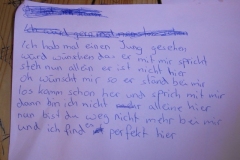 Ich hab mal einen Jung gesehn
würd wünschen das er mit mir spricht
steh nun allein er ist nicht hier
ch wünscht mir so er ständ bei mir
los kamm schon hier und sprich mit mir
dann bin ich nicht alleine hier
nun bist du weg nicht mehr bei mir
und ich find es perfekt hier